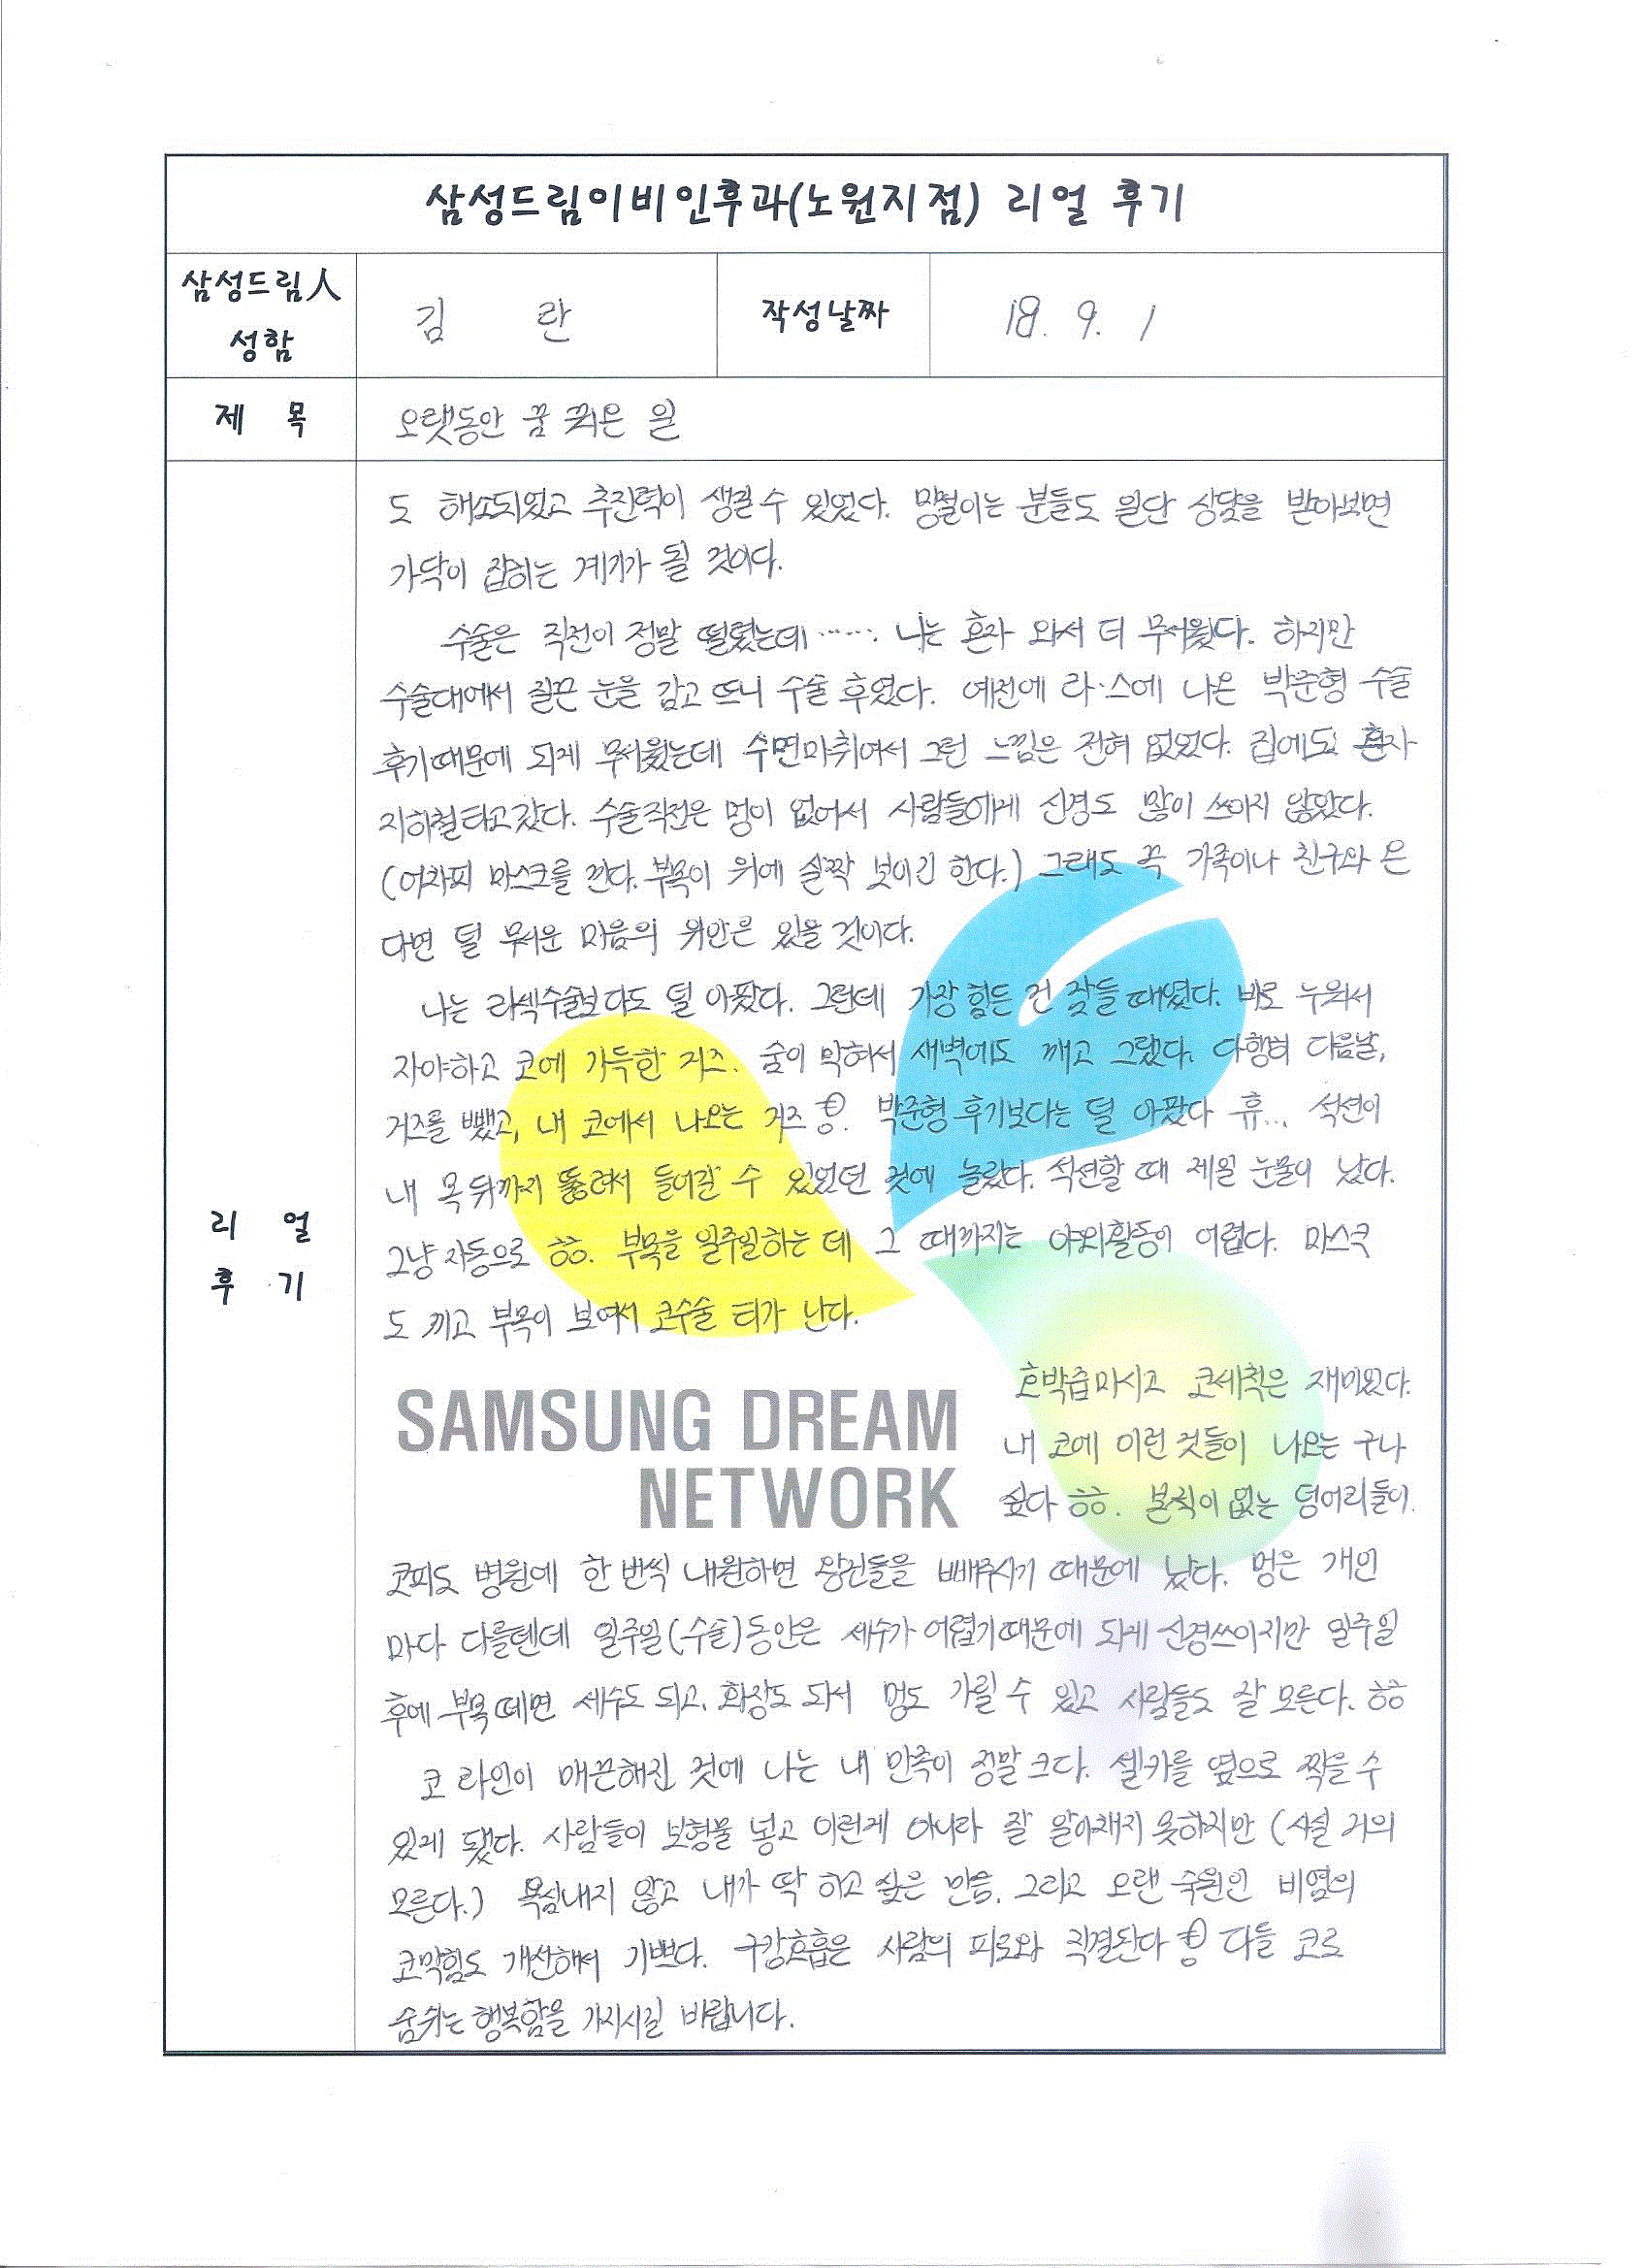 삼성드림이비인후과(노원지점) 리얼 후기
삼성드림人 성함
김 란
작성날짜
18. 9. 1
제 목
오랫동안 꿈 꿔온 일
리 얼 후 기
도 해소되었고 추진력이 생길 수 있었다. 망설이는 분들도 일단 상담을 받아보면
가닥이 잡히는 계기가 될 것이다.
수술은 직전이 정말 떨렸는데 ······. 나는 혼자 와서 더 무서웠다. 하지만
수술대에서 질끈 눈을 감고 뜨니 수술 후였다. 예전에 라·스에 나온 박준형 수술
후기때문에 되게 무서웠는데 수면마취여서 그런 느낌은 전혀 없었다. 집에도 혼자
지하철타고갔다. 수술직전은 멍이 없어서 사람들에게 신경도 많이 쓰이지 않았다.
(어차피 마스크를 낀다. 부목이 위에 살짝 보이긴 한다.) 그래도 꼭 가족이나 친구와 온
다면 덜 무서운 마음의 위안은 있을 것이다.
나는 라섹수술보다도 덜 아팠다. 그런데 가장 힘든 건 잠들 때였다. 바로 누워서
자야하고 코에 가득한 거즈. 숨이 막혀서 새벽에도 깨고 그랬다. 다행히 다음날,
거즈를 뺐고, 내 코에서 나오는 거즈 박준형 후기보다는 덜 아팠다 휴... 석션이
내 목뒤까지 뚫려서 들어갈 수 있었던 것에 놀랐다. 석션할 때 제일 눈물이 났다.
그냥 자동으로 ㅎㅎ. 부목을 일주일하는 데 그 때까지는 야외활동이 어렵다. 마스크
도 끼고 부목이 보여서 코수술 티가 난다.
SAMSUNG DREAM
NETWORK
호박즙마시고 코세척은 재미있다.
내 코에 이런 것들이 나오는 구나
싶다 ㅎㅎ. 본적이 없는 덩어리들이.
코피도 병원에 한 번씩 내원하면 왕건들을 빼주시기 때문에 났다. 멍은 개인
마다 다를텐데 일주일(수술)동안은 세수가 어렵기때문에 되게 신경쓰이지만 일주일
후에 부목 떼면 세수도 되고, 화장도 되서 멍도 가릴 수 있고 사람들도 잘 모른다. ㅎㅎ
코 라인이 매끈해진 것에 나는 내 만족이 정말 크다. 셀카를 옆으로 찍을 수
있게 됐다. 사람들이 보형물 넣고 이런게 아니라 잘 알아채지 못하지만 (사실 거의
모른다.) 욕심내지 않고 내가 딱 하고 싶은 만큼. 그리고 오랜 숙원인 비염의
코막힘도 개선해서 기쁘다. 구강호흡은 사람의 피로와 직결된다 다들 코로
숨쉬는 행복함을 가지시길 바랍니다.